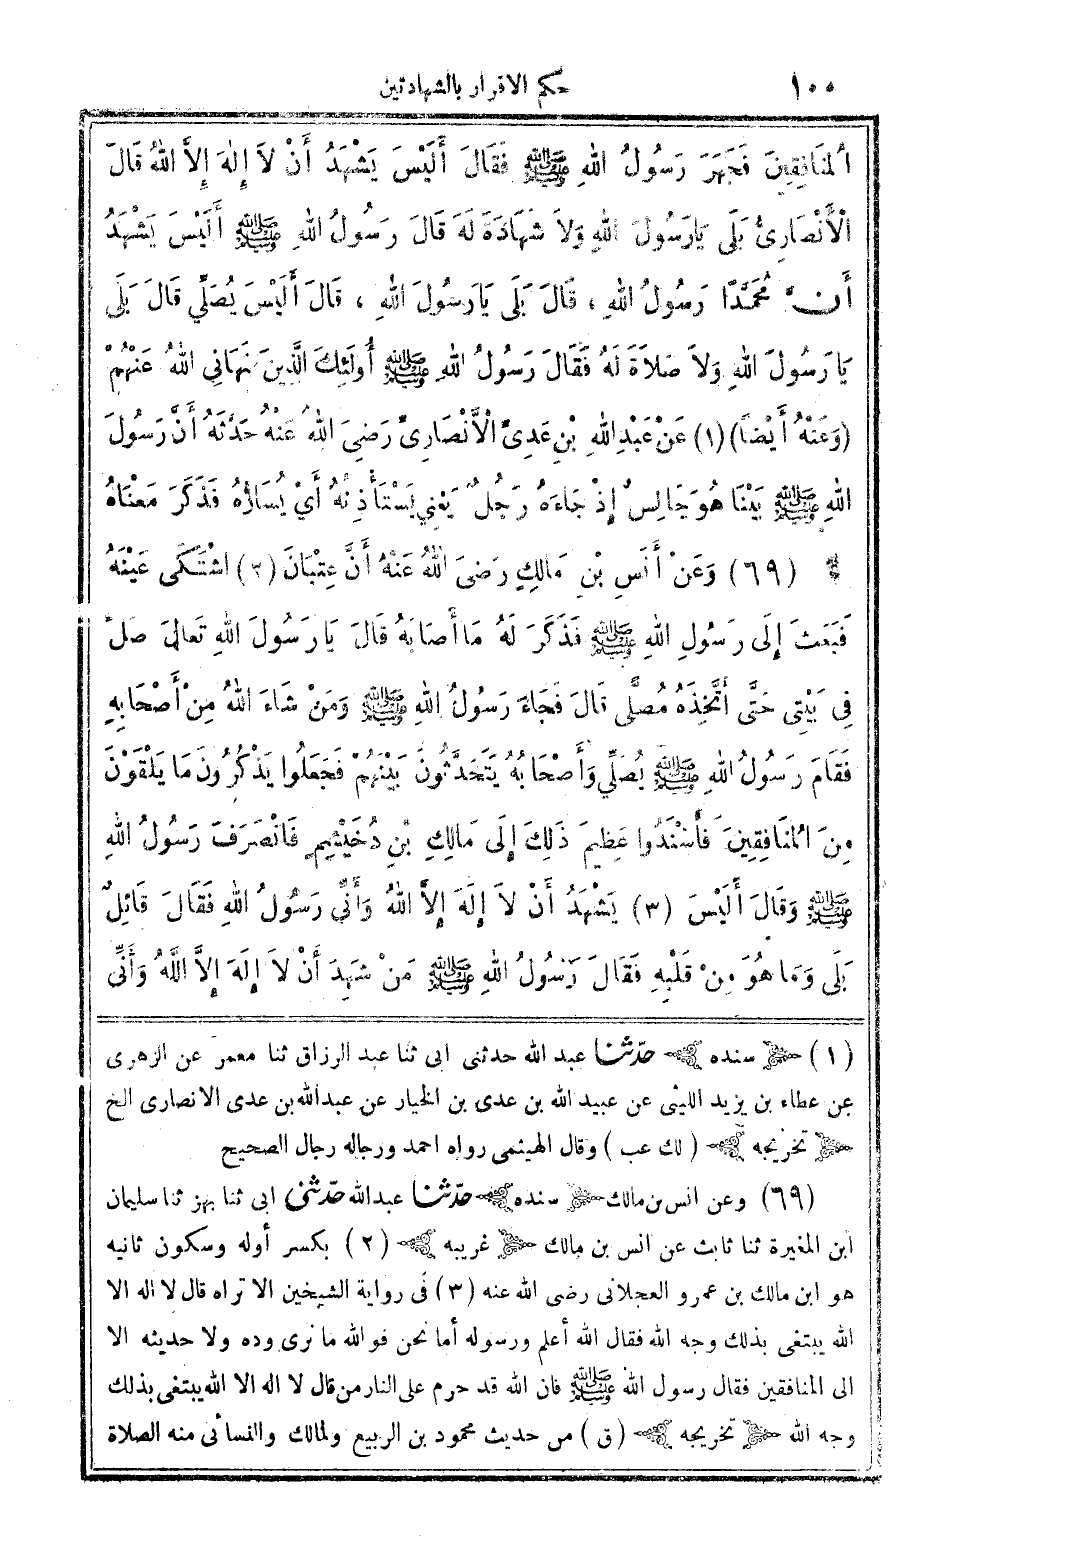 ١٠٠ حكم الاقرار بالشهادتين
الْمُنَافِقِينَ فَجَهَرَ رَسُولُ اللهِ ﷺ فَقَالَ أَلَيْسَ يَشْهَدُ أَنْ لاَ إِلٰهَ إِلاَّ اللهُ قَالَ
الْأَنْصَارِىُّ بَلَى يَارَسُولَ اللهِ وَلاَ شَهَادَةَ لَهُ قَالَ رَسُولُ اللهِ ﷺ أَلَيْسَ يَشْهَدُ
أَنَّ مُحَمَّدًا رَسُولُ اللهِ ، قَالَ بَلَى يَارَسُولَ اللهِ ، قَالَ أَلَيْسَ يُصَلِّي قَالَ بَلَى
يَارَسُولَ اللهِ وَلاَ صَلاَةَ لَهُ فَقَالَ رَسُولُ اللهِ ﷺ أُولَئِكَ الَّذِينَ نَهَانِي اللهُ عَنْهُمْ
(وَعَنْهُ أَيْضًا)(١) عَنْ عَبْدِ اللهِ بْنِ عَدِىٍّ الْأَنْصَارِىِّ رَضِيَ اللهُ عَنْهُ حَدَّثَهُ أَنَّ رَسُولَ
اللهِ ﷺ بَيْنَا هُوَ جَالِسٌ إِذْ جَاءَهُ رَجُلٌ يَعْنِي يَسْتَأْذِنُهُ أَيْ يُسَارُّهُ فَذَكَرَ مَعْنَاهُ
* (٦٩) وَعَنْ أَنَسِ بْنِ مَالِكٍ رَضِىَ اللهُ عَنْهُ أَنَّ عِتْبَانَ (٢) اشْتَكَى عَيْنَهُ
فَبَعَثَ إِلَى رَسُولِ اللهِ ﷺ فَذَكَرَ لَهُ مَا أَصَابَهُ قَالَ يَارَسُولَ اللهِ تَعَالَ صَلِّ
فِى بَيْتِى حَتَّى أَتَّخِذَهُ مُصَلًّى قَالَ فَجَاءَ رَسُولُ اللهِ ﷺ وَمَنْ شَاءَ اللهُ مِنْ أَصْحَابِهِ
فَقَامَ رَسُولُ اللهِ ﷺ يُصَلِّي وَأَصْحَابُهُ يَتَحَدَّثُونَ بَيْنَهُمْ فَجَعَلُوا يَذْكُرُونَ مَا يَلْقَوْنَ
مِنَ الْمُنَافِقِينَ فَأَسْنَدُوا عَظِيمَ ذَلِكَ إِلَى مَالِكِ بْنِ دُخَيْشِمٍ فَانْصَرَفَ رَسُولُ اللهِ
ﷺ وَقَالَ أَلَيْسَ (٣) يَشْهَدُ أَنْ لاَ إِلَهَ إِلاَّ اللهُ وَأَنِّى رَسُولُ اللهِ فَقَالَ قَائِلٌ
بَلَى وَمَا هُوَ مِنْ قَلْبِهِ فَقَالَ رَسُولُ اللهِ ﷺ مَنْ شَهِدَ أَنْ لاَ إِلَهَ إِلاَّ اللهُ وَأَنِّى
(١) سنده حدثنا عبد الله حدثنى ابى ثنا عبد الرزاق ثنا معمر عن الزهرى
عن عطاء بن يزيد الليثى عن عبيد الله بن عدى بن الخيار عن عبدالله بن عدى الانصارى الخ
تخريجه (لك عب) وقال الهيثمى رواه احمد ورجاله رجال الصحيح
(٦٩) وعن انس بن مالك سنده حدثنا عبدالله حدثنى ابى ثنا بهز ثنا سليمان
ابن المغيرة ثنا ثابت عن انس بن مالك غريبه (٢) بكسر أوله وسكون ثانيه
هو ابن مالك بن عمرو العجلانى رضى الله عنه (٣) فى رواية الشيخين الا تراه قال لا اله الا
الله يبتغى بذلك وجه الله فقال الله أعلم ورسوله أما نحن فوالله ما نرى وده ولا حديثه الا
الى المنافقين فقال رسول الله ﷺ فان الله قد حرم على النار من قال لا اله الا الله يبتغى بذلك
وجه الله تخريجه (ق) من حديث محمود بن الربيع ولمالك والنسائى منه الصلاة